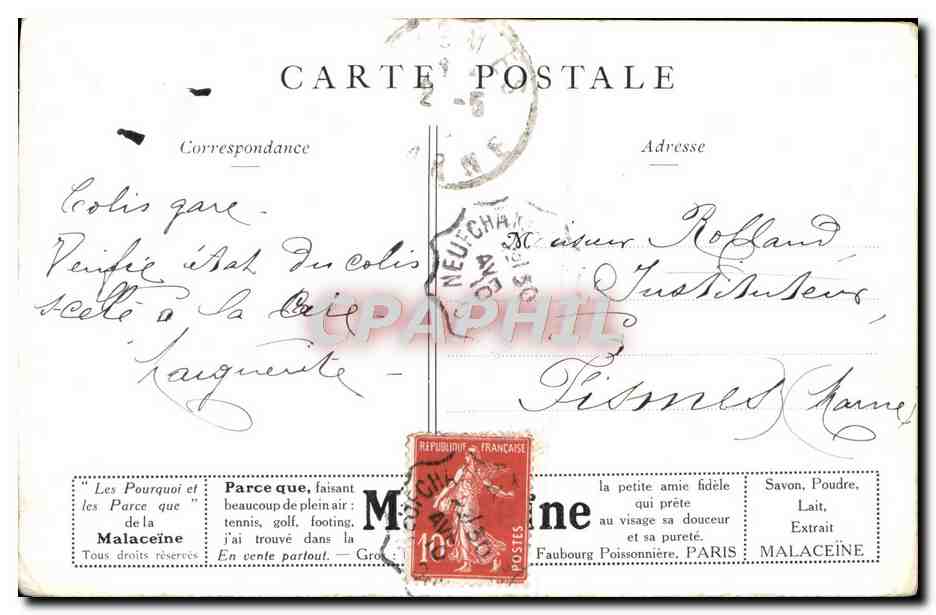 CARTE POSTALE
Correspondance
Adresse
Colis gare -
Vérifie état du colis
scellé à la Cire
Marguerite -
Monsieur Rolland
Instituteur
Fismes (Marne)
NEUFCHA
AVRE
21 30
2 - 5
CPAPHIL
REPUBLIQUE FRANÇAISE
10
POSTES
" Les Pourquoi et
les Parce que "
de la
Malaceïne
Tous droits réservés
Parce que, faisant
beaucoup de plein air :
tennis, golf, footing,
j'ai trouvé dans la
En vente partout. — Gros :
M ïne
la petite amie fidèle
qui prête
au visage sa douceur
et sa pureté.
Faubourg Poissonnière, PARIS
Savon, Poudre,
Lait,
Extrait
MALACEÏNE